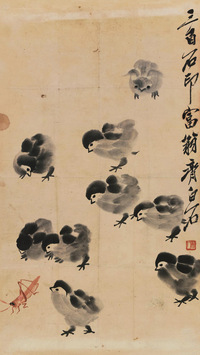 三百石印富翁齊白石